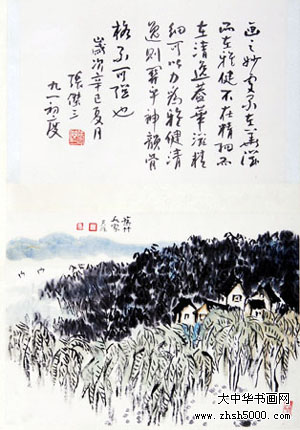 画之妙处不在華滋
而在雅健不在精细而
在清逸蓋華滋精
细可以力為雅健清
逸则關乎神韻骨
格不可强也
歲次辛巳夏月
張傑三
九一初度
人家
大中华书画网
www.zhsh5000.com